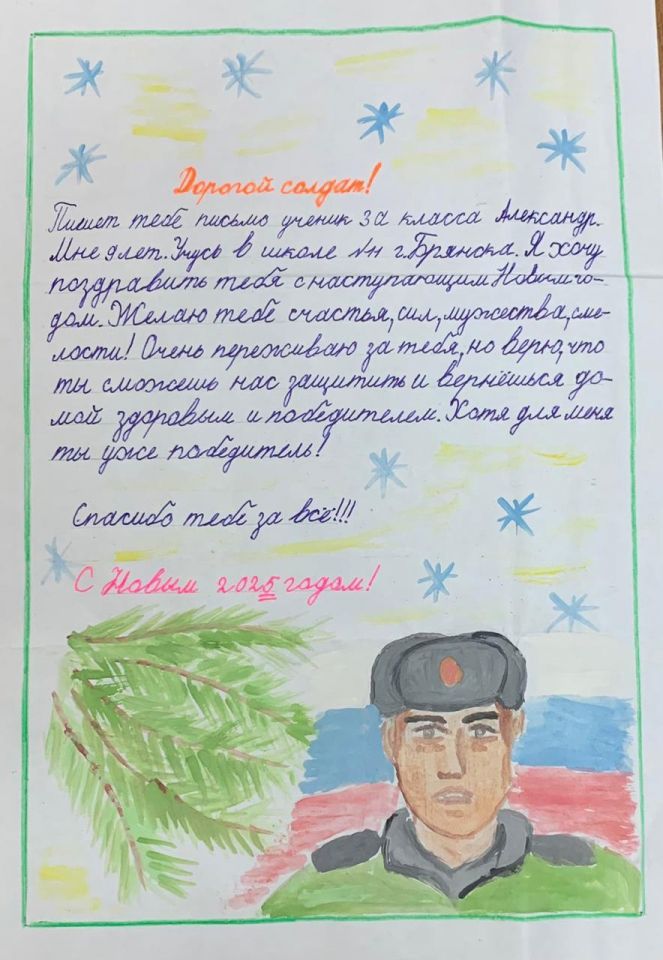 Дорогой солдат!
Пишет тебе письмо ученик 3а класса Александр.
Мне 9 лет. Учусь в школе №11 г. Брянска. Я хочу
поздравить тебя с наступающим Новым го-
дом. Желаю тебе счастья, сил, мужества, сме-
лости! Очень переживаю за тебя, но верю, что
ты сможешь нас защитить и вернёшься до-
мой здоровым и победителем. Хотя для меня
ты уже победитель!
Спасибо тебе за всё!!!
С Новым 2025 годом!